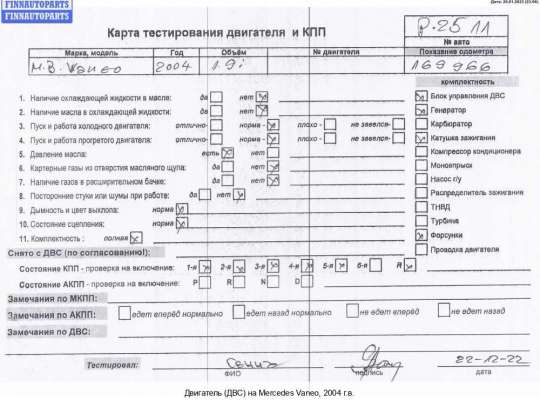 FINNAUTOPARTS
FINNAUTOPARTS
Карта тестирования двигателя и КПП
P.25 11
№ авто
Марка, модель Год Объём № двигателя Показание одометра
M.B. Vaneo 2004 1.9i 169966
комплектность
1. Наличие охлаждающей жидкости в масле: да нет
Блок управления ДВС
2. Наличие масла в охлаждающей жидкости: да нет
Генератор
3. Пуск и работа холодного двигателя: отлично- норма - плохо - не завелся-
Карбюратор
4. Пуск и работа прогретого двигателя: отлично- норма - плохо - не завелся-
Катушка зажигания
5. Давление масла: есть нет
Компрессор кондиционера
6. Картерные газы из отверстия масляного щупа: да нет
Моновпрыск
7. Наличие газов в расширительном бачке: да нет
Насос г/у
8. Посторонние стуки или шумы при работе: да нет
Распределитель зажигания
9. Дымность и цвет выхлопа: норма
ТНВД
10. Состояние сцепления: норма
Турбина
11. Комплектность : полная
Форсунки
Снято с ДВС (по согласованию):
Проводка двигателя
Состояние КПП - проверка на включение: 1-я 2-я 3-я 4-я 5-я 6-я R
Состояние АКПП - проверка на включение: P R N D
Замечания по МКПП:
Замечания по АКПП: едет вперёд нормально едет назад нормально не едет вперёд не едет назад
Замечания по ДВС:
Тестировал: 22-12-22
ФИО подпись дата
Двигатель (ДВС) на Mercedes Vaneo, 2004 г.в.